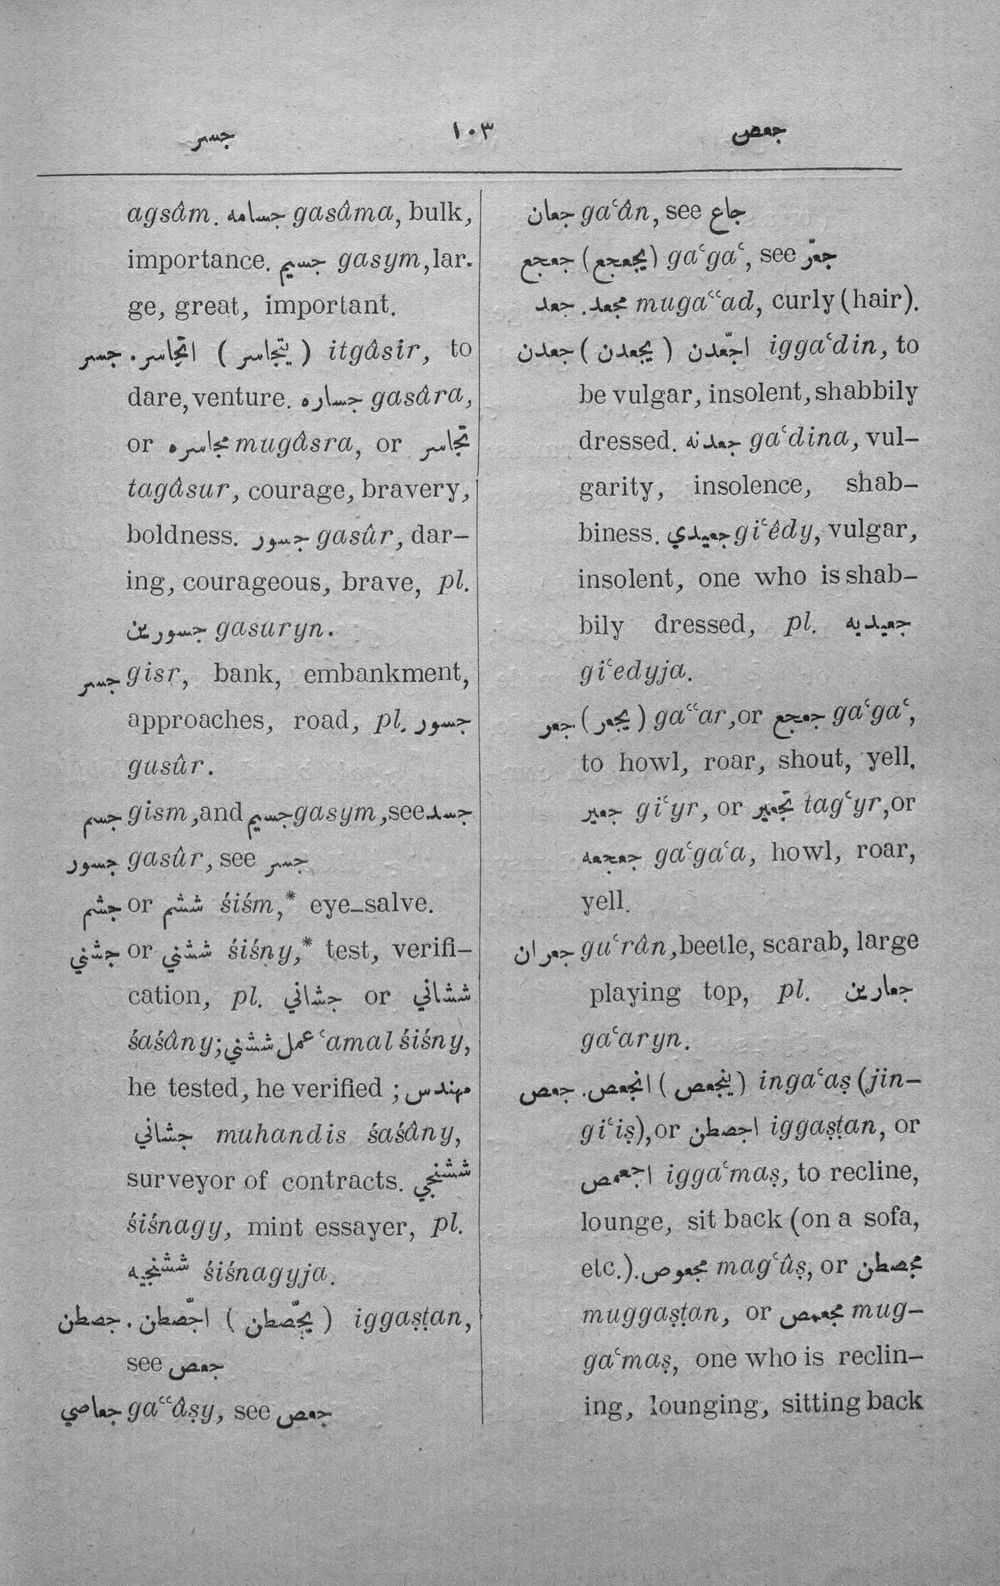 جسر ١٠٣ جعص
agsâm. جسامه gasâma, bulk,
importance. جسيم gasym, lar-
ge, great, important.
جسر. اتجاسر ( يتجاسر ) itgâsir, to
dare, venture. جساره gasâra,
or مجاسره mugâsra, or تجاسر
tagâsur, courage, bravery,
boldness. جسور gasûr, dar-
ing, courageous, brave, pl.
جسورين gasuryn.
جسر gisr, bank, embankment,
approaches, road, pl. جسور
gusûr.
جسم gism, and جسيم gasym, see جسد
جسور gasûr, see جسر
جشم or ششم śiśm,* eye-salve.
جشني or ششني śiśny,* test, verifi-
cation, pl. جشاني or ششاني
śaśâny; عمل ششني ʿamal śiśny,
he tested, he verified ; مهندس
جشاني muhandis śaśâny,
surveyor of contracts. ششنجي
śiśnagy, mint essayer, pl.
ششنجيه śiśnagyja.
جصطن. اجّصطن ( يجّصطن ) iggaṣṭan,
see جعص
جعاصي gaʿʿâṣy, see جعص
جعان gaʿân, see جاع
جعجع (يجعجع) gaʿgaʿ, see جعّر
جعد. مجعد mugaʿʿad, curly (hair).
جعدن ( يجعدن ) اجّعدن iggaʿdin, to
be vulgar, insolent, shabbily
dressed. جعدنه gaʿdina, vul-
garity, insolence, shab-
biness. جعيدي giʿêdy, vulgar,
insolent, one who is shab-
bily dressed, pl. جعيديه
giʿedyja.
جعر ( يجعر ) gaʿʿar, or جعجع gaʿgaʿ,
to howl, roar, shout, yell.
جعير giʿyr, or تجعير tagʿyr, or
جعجعه gaʿgaʿa, howl, roar,
yell.
جعران guʿrân, beetle, scarab, large
playing top, pl. جعارين
gaʿaryn.
جعص. انجعص ( ينجعص ) ingaʿaṣ (jin-
giʿiṣ), or اجصطن iggaṣṭan, or
اجعمص iggaʿmaṣ, to recline,
lounge, sit back (on a sofa,
etc.). مجعوص magʿûṣ, or مجصطن
muggaṣṭan, or مجعمص mug-
gaʿmaṣ, one who is reclin-
ing, lounging, sitting back